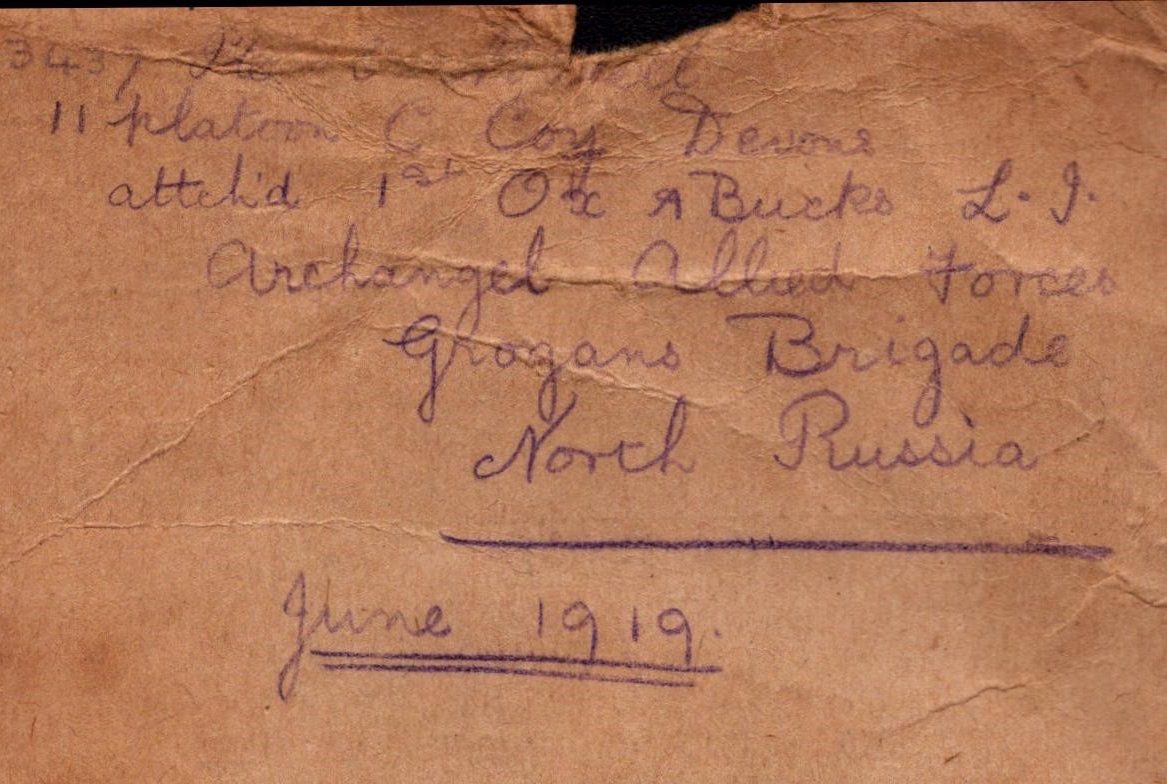 3437 Pte
11 platoon C Coy Devons
attch'd 1st Ox & Bucks L. I.
Archangel Allied Forces
Grogans Brigade
North Russia
June 1919.